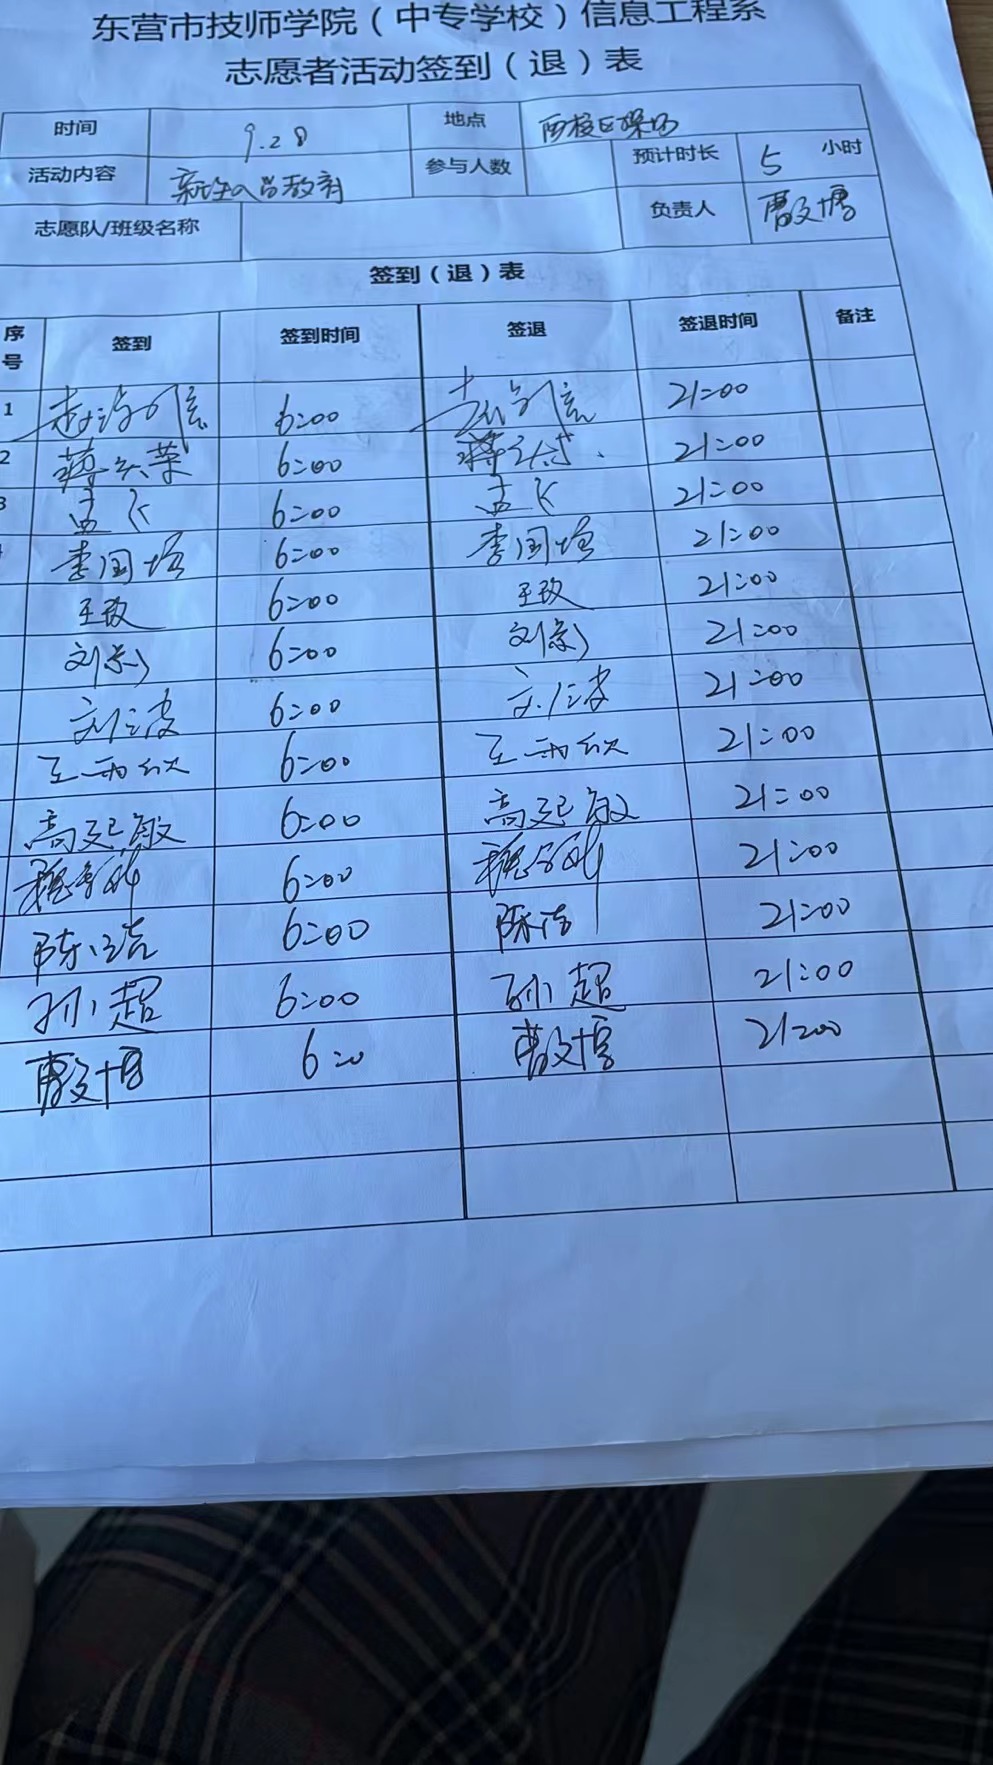 东营市技师学院（中专学校）信息工程系
志愿者活动签到（退）表
时间 9.28 地点 西校区操场
活动内容 新生入学教育 参与人数 预计时长 5 小时
志愿队/班级名称 负责人
签到（退）表
序号 签到 签到时间 签退 签退时间 备注
1 6:00 21:00
2 6:00 21:00
3 孟飞 6:00 孟飞 21:00
李国培 6:00 李国培 21:00
王政 6:00 王政 21:00
刘 6:00 刘 21:00
刘仁波 6:00 刘仁波 21:00
王雨欣 6:00 王雨欣 21:00
高 敏 6:00 高 敏 21:00
6:00 21:00
陈洁 6:00 陈洁 21:00
孙超 6:00 孙超 21:00
6:0 21:00